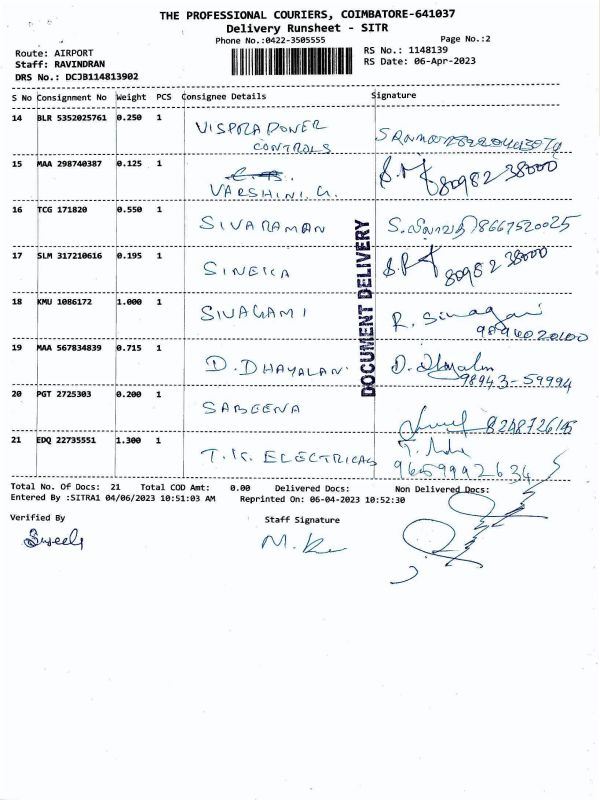 THE PROFESSIONAL COURIERS, COIMBATORE-641037
Delivery Runsheet - SITR
Phone No.:0422-3505555 Page No.:2
Route: AIRPORT RS No.: 1148139
Staff: RAVINDRAN RS Date: 06-Apr-2023
DRS No.: DCJB114813902
S No Consignment No Weight PCS Consignee Details Signature
14 BLR 5352025761 0.250 1
CONTROLS
15 MAA 298740387 0.125 1
VARSHINI. G. 80982 38000
16 TCG 171820 0.550 1 SIVARAMAN 8667520025
17 SLM 317210616 0.195 1 SINEKA 80982 38000
18 KMU 1086172 1.000 1 SIVAGAMI R. Sivagami
9894020100
19 MAA 567834839 0.715 1 D. DHAYALAN D. Dhayalan
98943-59994
20 PGT 2725303 0.200 1 SABEENA
21 EDQ 22735551 1.300 1 T.K. ELECTRICALS
9659992634
DOCUMENT DELIVERY
Total No. Of Docs: 21 Total COD Amt: 0.00 Delivered Docs: Non Delivered Docs:
Entered By :SITRA1 04/06/2023 10:51:03 AM Reprinted On: 06-04-2023 10:52:30
Verified By Staff Signature